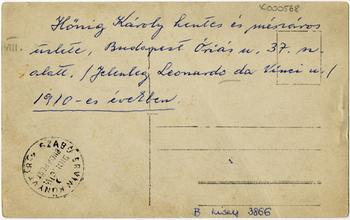 K000568
Hőnig Károly hentes és mészáros
üzlete, Budapest Óriás u. 37. sz.
VIII.
alatt, /Jelenleg Leonardo da Vinci u./
1910-es években.
SZABÓ ERVIN KÖNYVTÁR
B 3866